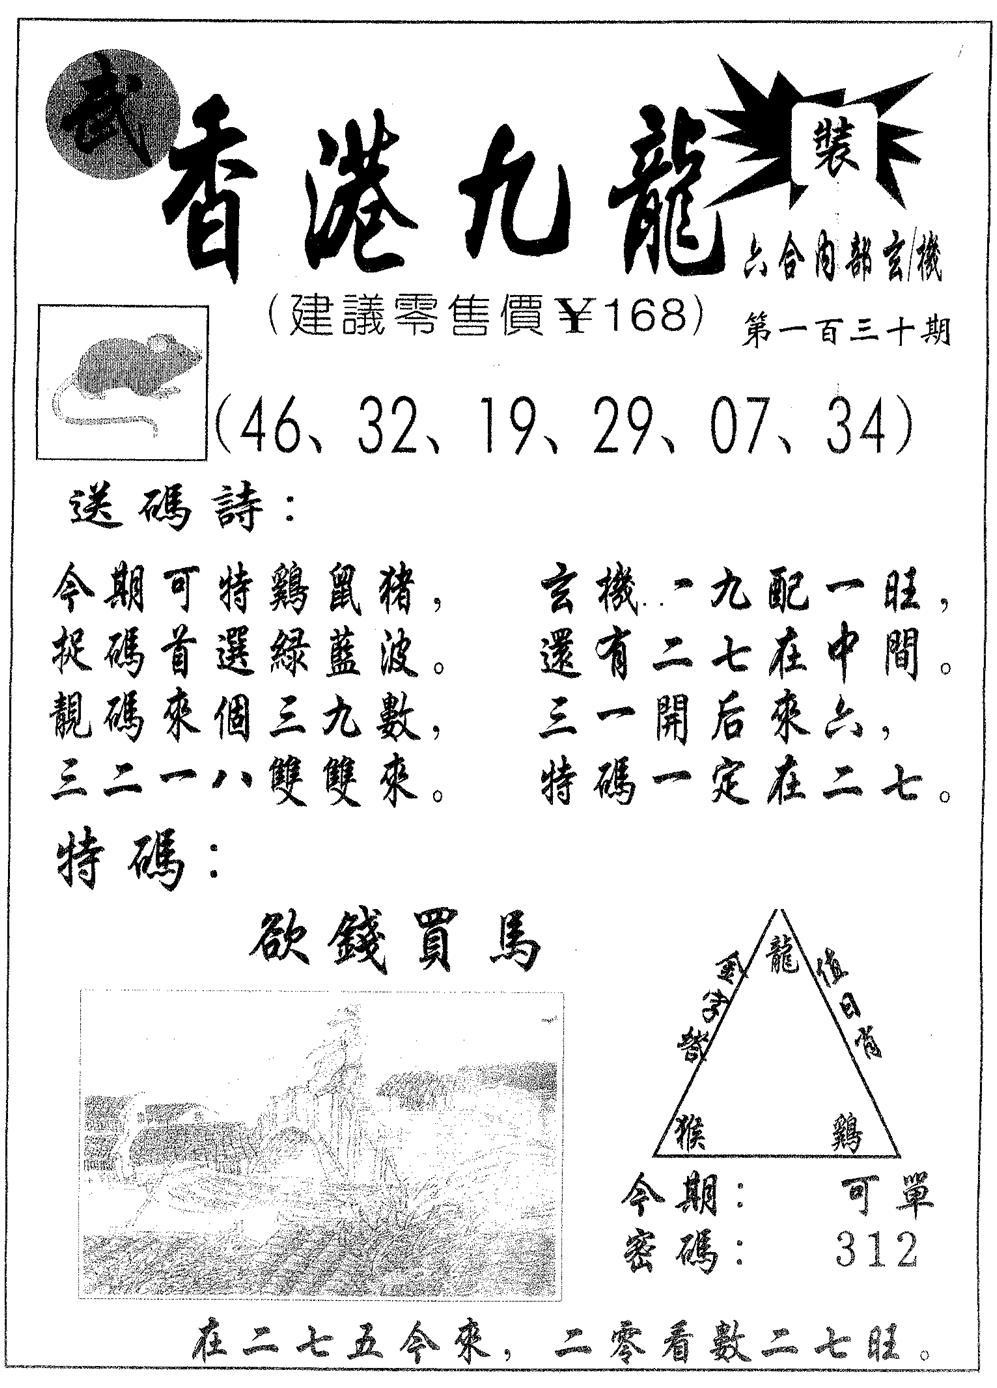 武
香港九龍
裝
六合內部玄機
(建議零售價¥168)
第一百三十期
(46、32、19、29、07、34)
送碼詩：
今期可特鷄鼠猪，
捉碼首選綠藍波。
靚碼來個三九數，
三二一八雙雙來。
玄機一九配一旺，
還有二七在中間。
三一開后來六，
特碼一定在二七。
特碼：
欲錢買馬
龍
值日肖
猴
鷄
今期：可單
密碼：312
在二七五今來，二零看數二七旺。